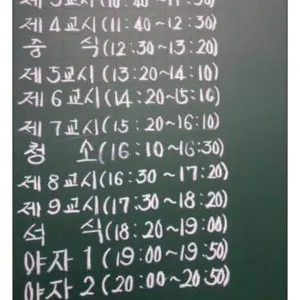 제3교시(10:40~11:30)
제4교시(11:40~12:30)
중 식(12:30~13:20)
제5교시(13:20~14:10)
제6교시(14:20~15:10)
제7교시(15:20~16:10)
청 소(16:10~16:30)
제8교시(16:30~17:20)
제9교시(17:30~18:20)
석 식(18:20~19:00)
야자1(19:00~19:50)
야자2(20:00~20:50)